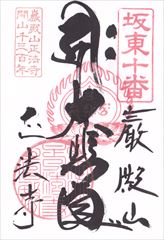 坂東十番
巌殿山
大悲閣
正法寺
巌殿山正法寺
開山千三百年